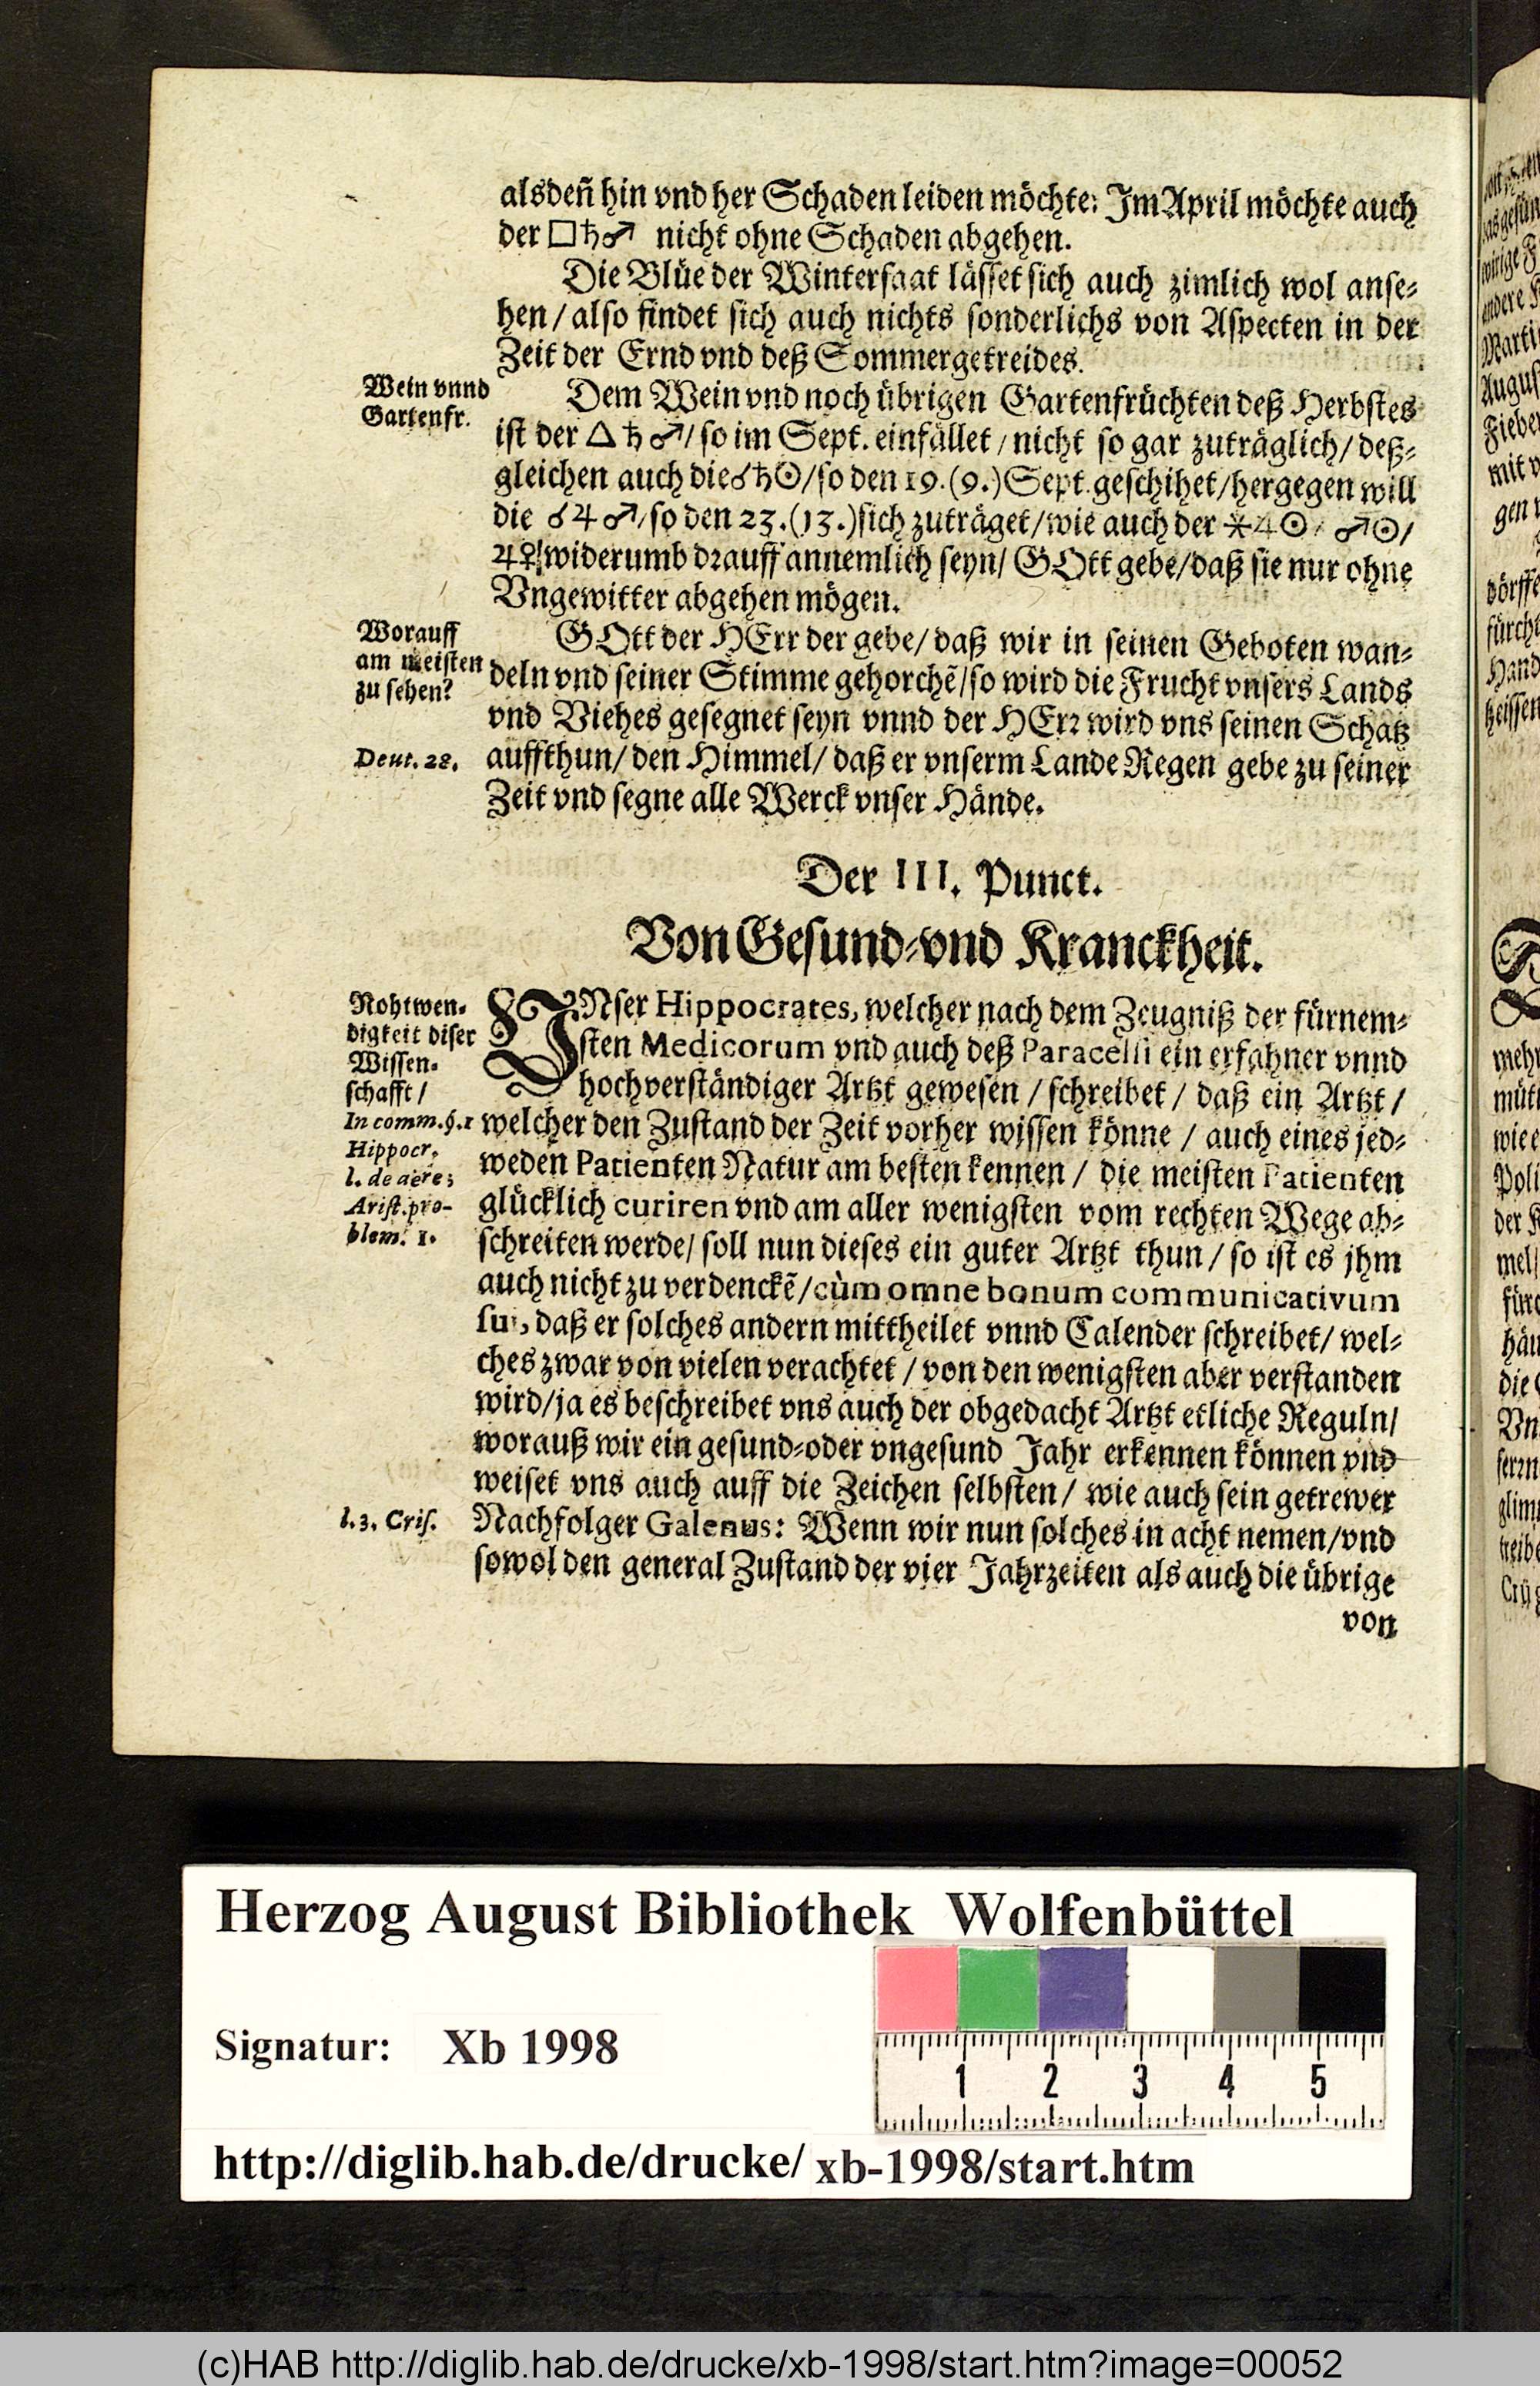 alsdeñ hin vnd her Schaden leiden möchte: Im April möchte auch
der □♄♂ nicht ohne Schaden abgehen.
Die Blüe der Wintersaat lässet sich auch zimlich wol anse-
hen / also findet sich auch nichts sonderlichs von Aspecten in der
Zeit der Ernd vnd deß Sommergetreides.
Wein vnnd
Gartenfr.
Dem Wein vnd noch übrigen Gartenfrüchten deß Herbstes
ist der △ ♄ ♂/ so im Sept. einfället / nicht so gar zuträglich / deß-
gleichen auch die ☌♄☉/ so den 19. (9.) Sept. geschihet / hergegen will
die ☌ ♃ ♂/ so den 23. (13.) sich zuträget / wie auch der ⚹♃☉/ ♂☉/
♃♀/ widerumb drauff annemlich seyn / GOtt gebe / daß sie nur ohne
Vngewitter abgehen mögen.
Worauff
am meisten
zu sehen?
GOtt der HErr der gebe / daß wir in seinen Geboten wan-
deln vnd seiner Stimme gehorchē / so wird die Frucht vnsers Lands
vnd Viehes gesegnet seyn vnnd der HErr wird vns seinen Schatz
Deut. 28.
auffthun / den Himmel / daß er vnserm Lande Regen gebe zu seiner
Zeit vnd segne alle Werck vnser Hände.
Der III. Punct.
Von Gesund-vnd Kranckheit.
Nohtwen-
digkeit diser
Wissen-
schafft /
In comm. §. 1
Hippocr.
l. de aëre;
Arist. pro-
blem. 1.
VNser Hippocrates, welcher nach dem Zeugniß der fürnem-
sten Medicorum vnd auch deß Paracelsi ein erfahner vnnd
hochverständiger Artzt gewesen / schreibet / daß ein Artzt /
welcher den Zustand der Zeit vorher wissen könne / auch eines jed-
weden Patienten Natur am besten kennen / die meisten Patienten
glücklich curiren vnd am aller wenigsten vom rechten Wege ab-
schreiten werde / soll nun dieses ein guter Artzt thun / so ist es jhm
auch nicht zu verdenckē / cùm omne bonum communicativum
sui, daß er solches andern mittheilet vnnd Calender schreibet / wel-
ches zwar von vielen verachtet / von den wenigsten aber verstanden
wird / ja es beschreibet vns auch der obgedacht Artzt etliche Reguln /
worauß wir ein gesund-oder vngesund Jahr erkennen können vnd
weiset vns auch auff die Zeichen selbsten / wie auch sein getrewer
l. 3. Cris.
Nachfolger Galenus: Wenn wir nun solches in acht nemen / vnd
sowol den general Zustand der vier Jahrzeiten als auch die übrige
von
Herzog August Bibliothek Wolfenbüttel
Signatur: Xb 1998
1 2 3 4 5
http://diglib.hab.de/drucke/ xb-1998/start.htm
(c)HAB http://diglib.hab.de/drucke/xb-1998/start.htm?image=00052